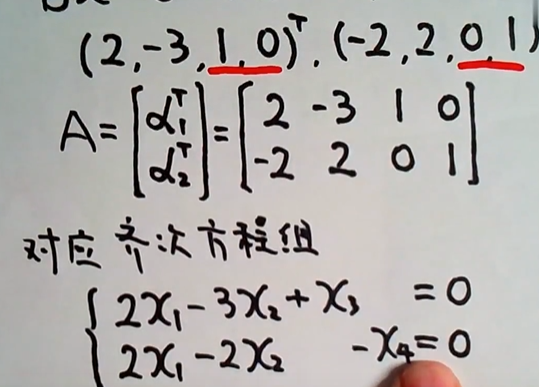 (2,-3,1,0)ᵀ,(-2,2,0,1)
A=[α₁ᵀ α₂ᵀ]=[2 -3 1 0
-2 2 0 1]
对应齐次方程组
2x₁-3x₂+x₃ =0
2x₁-2x₂ -x₄=0